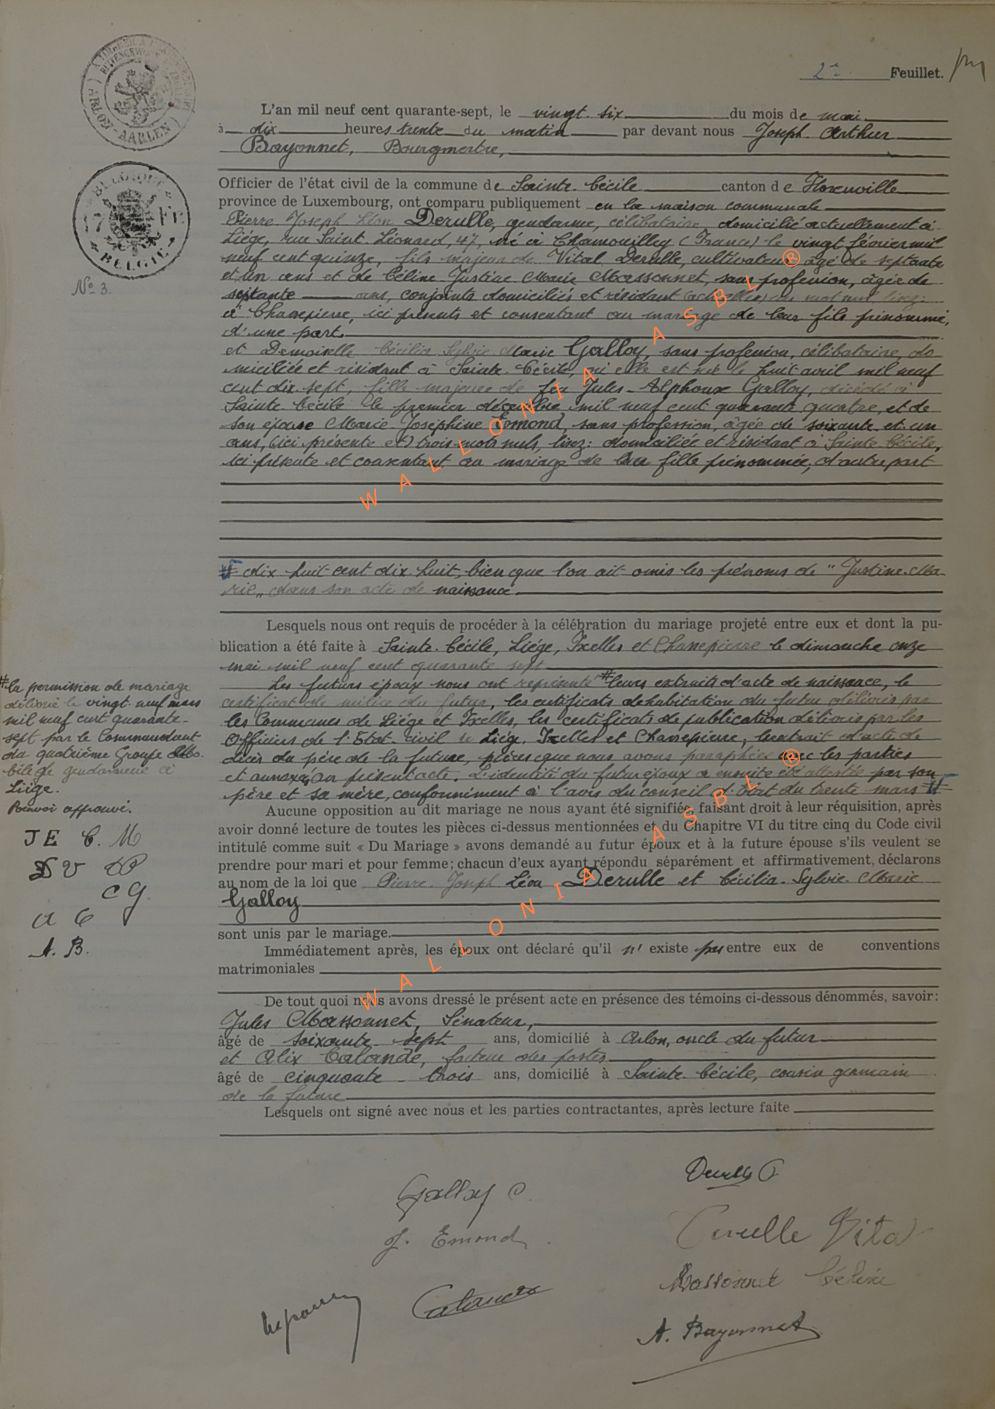 2e Feuillet.
L'an mil neuf cent quarante-sept, le vingt six du mois de mai
à dix heures trente du matin par devant nous Joseph Arthur
Bayonnet, Bourgmestre,
BELGIQUE
BELGIË
No 3.
Officier de l'état civil de la commune de Sainte Cécile canton de Florenville
province de Luxembourg, ont comparu publiquement en la maison communale
Pierre Joseph Léon Derulle, gendarme, célibataire domicilié actuellement à
Liége, rue Saint Léonard, 47, né à Chamouilley (France) le vingt février mil
neuf cent quinze, fils majeur de Vital Derulle, cultivateur âgé de septante
et un ans et de Céline Justine Marie Massonnet, sans profession, âgée de
septante ans, conjoints domiciliés et résidant
à Chassepierre, ici présents et consentant au mariage de leur fils prénommé,
d'une part.
et Demoiselle Cécilia Sylvie Marie Galloy, sans profession, célibataire, do-
miciliée et résidant à Sainte Cécile, où elle est née le huit avril mil neuf
cent dix sept, fille majeure de feu Jules Alphonse Galloy, décédé à
Sainte Cécile le premier décembre mil neuf cent quarante quatre, et de
son épouse Marie Joséphine Emond, sans profession, âgée de soixante et un
ans, (ici présente et) trois mots nuls, lisez: domiciliée et résidant à Sainte Cécile,
ici présente et consentant au mariage de leur fille prénommée, d'autre part
# dix huit cent dix huit, bien que l'on ait omis les prénoms de "Justine Ma-
rie" dans son acte de naissance.
Lesquels nous ont requis de procéder à la célébration du mariage projeté entre eux et dont la pu-
blication a été faite à Sainte Cécile, Liége, Ixelles et Chassepierre le dimanche onze
mai mil neuf cent quarante sept
Les futurs époux nous ont représenté # leurs extraits d'acte de naissance, le
certificat de milice du futur, les certificats d'habitation du futur délivrés par
les Communes de Liége et Ixelles, les certificats de publication délivrés par les
Officiers de l'Etat civil de Liége, Ixelles et Chassepierre, l'extrait d'acte de
décès du père de la future, pièces que nous avons paraphées avec les parties
et annexées au présent acte. L'identité du futur époux a ensuite été attestée par son
père et sa mère, conformément à l'avis du conseil d'Etat du trente mars #
# la permission de mariage
délivrée le vingt neuf mars
mil neuf cent quarante-
sept par le Commandant
du quatrième Groupe Mo-
bile de gendarmerie à
Liége.
Renvoi approuvé.
JE C. M
D V
C G.
A C
A. B.
Aucune opposition au dit mariage ne nous ayant été signifiée, faisant droit à leur réquisition, après
avoir donné lecture de toutes les pièces ci-dessus mentionnées et du Chapitre VI du titre cinq du Code civil
intitulé comme suit « Du Mariage » avons demandé au futur époux et à la future épouse s'ils veulent se
prendre pour mari et pour femme; chacun d'eux ayant répondu séparément et affirmativement, déclarons
au nom de la loi que Pierre Joseph Léon Derulle et Cécilia Sylvie Marie
Galloy
sont unis par le mariage.
Immédiatement après, les époux ont déclaré qu'il n'existe pas entre eux de conventions
matrimoniales
De tout quoi nous avons dressé le présent acte en présence des témoins ci-dessous dénommés, savoir:
Jules Massonnet, Sénateur,
âgé de soixante sept ans, domicilié à Arlon, oncle du futur
et Alix Calande, facteur des postes
âgé de cinquante trois ans, domicilié à Sainte Cécile, cousin germain
de la future
Lesquels ont signé avec nous et les parties contractantes, après lecture faite
Galloy C.
J. Emond
Derulle Vital
Massonnet Céline
A. Bayonnet
WALLONIA ASBL ®
WALLONIA ASBL ®